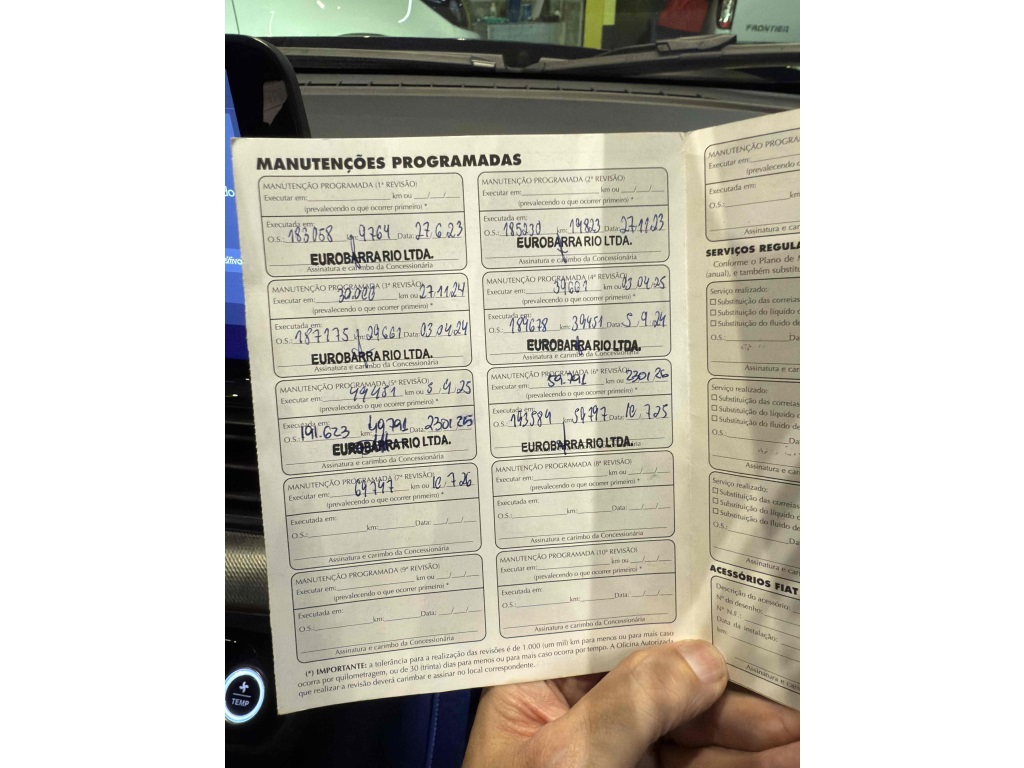 FRONTIER
MANUTENÇÕES PROGRAMADAS
MANUTENÇÃO PROGRAMADA (1ª REVISÃO)
Executar em: km ou __/__/__
(prevalecendo o que ocorrer primeiro) *
Executada em:
O.S.: 183068 km: 9764 Data: 27.6.23
EUROBARRA RIO LTDA.
Assinatura e carimbo da Concessionária
MANUTENÇÃO PROGRAMADA (2ª REVISÃO)
Executar em: km ou __/__/__
(prevalecendo o que ocorrer primeiro) *
Executada em:
O.S.: 185230 km: 19823 Data: 27.11.23
EUROBARRA RIO LTDA.
Assinatura e carimbo da Concessionária
MANUTENÇÃO PROGRAMADA (3ª REVISÃO)
Executar em: 30.000 km ou 27.11.24
(prevalecendo o que ocorrer primeiro) *
Executada em:
O.S.: 187775 km: 29661 Data: 03.04.24
EUROBARRA RIO LTDA.
Assinatura e carimbo da Concessionária
MANUTENÇÃO PROGRAMADA (4ª REVISÃO)
Executar em: 39661 km ou 03.04.25
(prevalecendo o que ocorrer primeiro) *
Executada em:
O.S.: 189678 km: 39451 Data: 5.9.24
EUROBARRA RIO LTDA.
Assinatura e carimbo da Concessionária
MANUTENÇÃO PROGRAMADA (5ª REVISÃO)
Executar em: 49451 km ou 5.9.25
(prevalecendo o que ocorrer primeiro) *
Executada em:
O.S.: 191.623 km: 49.791 Data: 230125
EUROBARRA RIO LTDA.
Assinatura e carimbo da Concessionária
MANUTENÇÃO PROGRAMADA (6ª REVISÃO)
Executar em: 59.791 km ou 230126
(prevalecendo o que ocorrer primeiro) *
Executada em:
O.S.: 193584 km: 59797 Data: 10.7.25
EUROBARRA RIO LTDA.
Assinatura e carimbo da Concessionária
MANUTENÇÃO PROGRAMADA (7ª REVISÃO)
Executar em: 69797 km ou 10.7.26
(prevalecendo o que ocorrer primeiro) *
Executada em:
O.S.: km: Data: __/__/__
Assinatura e carimbo da Concessionária
MANUTENÇÃO PROGRAMADA (8ª REVISÃO)
Executar em: km ou __/__/__
(prevalecendo o que ocorrer primeiro) *
Executada em:
O.S.: km: Data: __/__/__
Assinatura e carimbo da Concessionária
MANUTENÇÃO PROGRAMADA (9ª REVISÃO)
Executar em: km ou __/__/__
(prevalecendo o que ocorrer primeiro) *
Executada em:
O.S.: km: Data: __/__/__
Assinatura e carimbo da Concessionária
MANUTENÇÃO PROGRAMADA (10ª REVISÃO)
Executar em: km ou __/__/__
(prevalecendo o que ocorrer primeiro) *
Executada em:
O.S.: km: Data: __/__/__
Assinatura e carimbo da Concessionária
(*) IMPORTANTE: a tolerância para a realização das revisões é de 1.000 (um mil) km para menos ou para mais caso
ocorra por quilometragem, ou de 30 (trinta) dias para menos ou para mais caso ocorra por tempo. A Oficina Autorizada
que realizar a revisão deverá carimbar e assinar no local correspondente.
MANUTENÇÃO PROGRA
Executar em:
(prevalecendo o
Executada em:
O.S.: km
Assinatura e
SERVIÇOS REGULA
Conforme o Plano de M
(anual), e também substitu
Serviço realizado:
☐ Substituição das correias
☐ Substituição do líquido d
☐ Substituição do fluido de
O.S.: Da
Assinatura e car
Serviço realizado:
☐ Substituição das correias
☐ Substituição do líquido d
☐ Substituição do fluido de
O.S.: Da
Assinatura e car
Serviço realizado:
☐ Substituição das correias
☐ Substituição do líquido
☐ Substituição do fluido de
O.S.: Da
Assinatura e car
ACESSÓRIOS FIAT
Descrição do acessório:
Nº do desenho:
Nº N.F.:
Data da instalação:
km:
Assinatura e car
+
TEMP